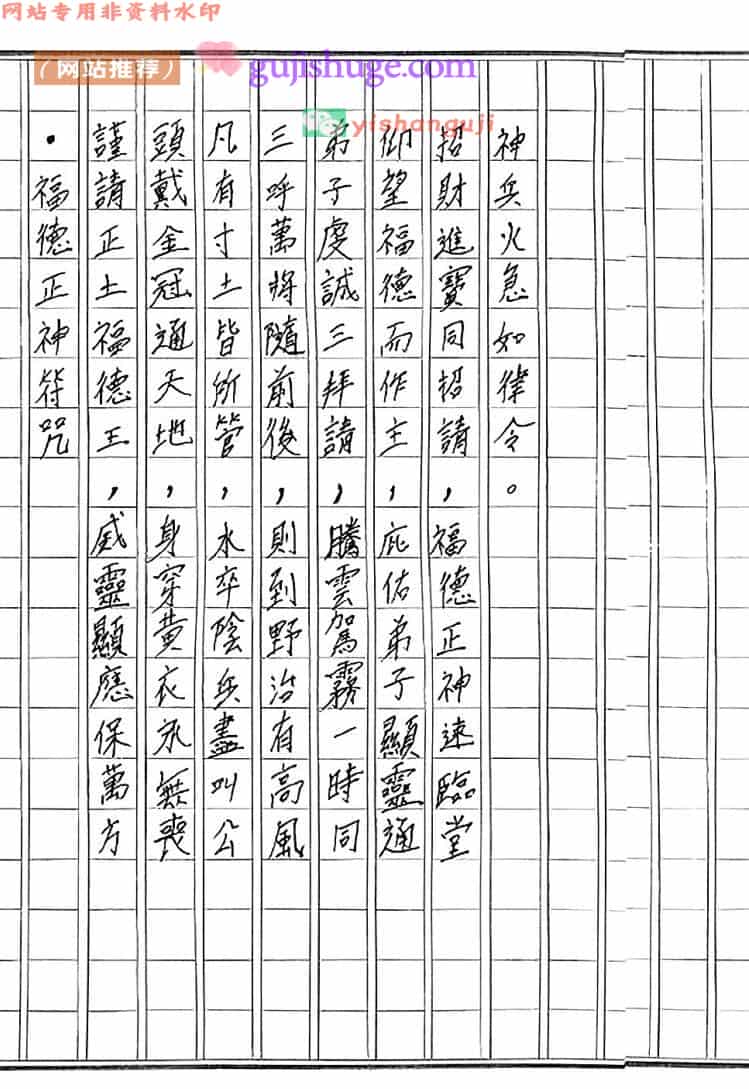 网站专用非资料水印
（网站推荐）
gujishuge.com
yishanguji
・福德正神符咒
謹請正土福德王，威靈顯應保萬方
頭戴金冠通天地，身穿黄衣永無喪
凡有寸土皆所管，水卒陰兵盡叫公
三呼萬將隨前後，則到野治有高風
弟子虔誠三拜請，騰雲駕霧一時同
仰望福德而作主，庇佑弟子顯靈通
招財進寶同招請，福德正神速臨堂
神兵火急如律令。